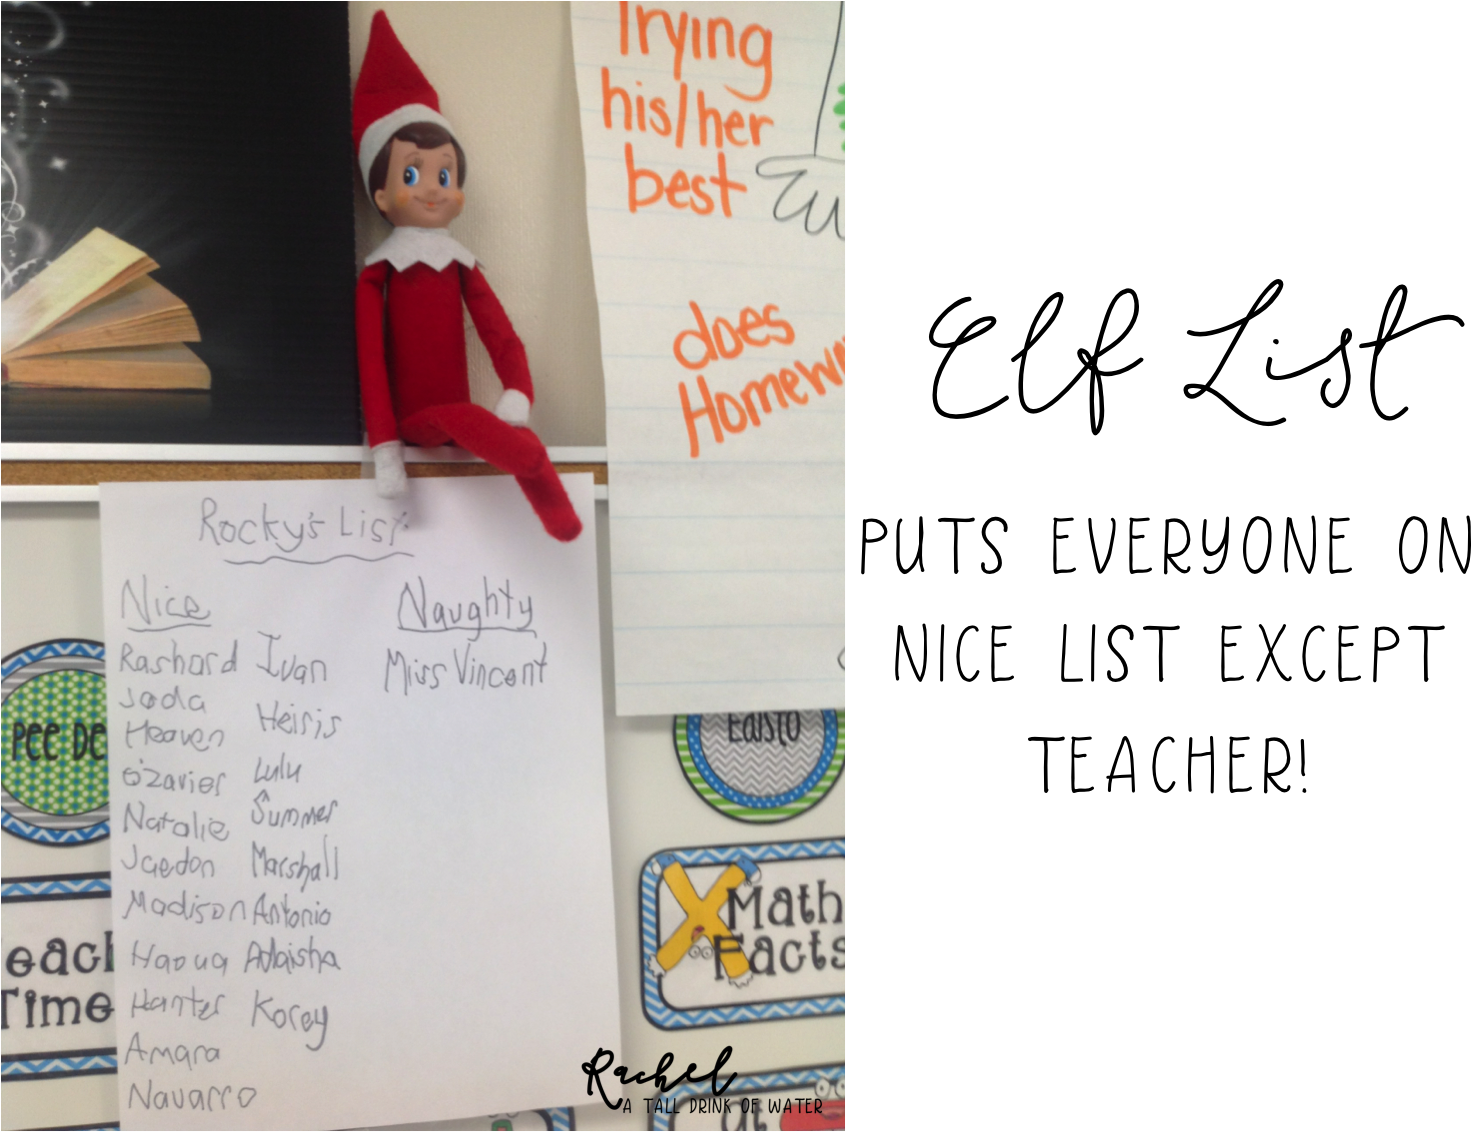 Trying
his/her
best
does
Homew
Rocky's List
Nice
Naughty
Rashard
Ivan
Miss Vincent
Jada
Heiris
Heaven
O'zavier
Lulu
Natalie
Summer
Jaedon
Marshall
Madison
Antonio
Haoua
Adaisha
Hanter
Korey
Amara
Navarro
Pee De
Edisto
Math
Facts
each
Time
Rachel
A TALL DRINK OF WATER
Elf List
PUTS EVERYONE ON
NICE LIST EXCEPT
TEACHER!